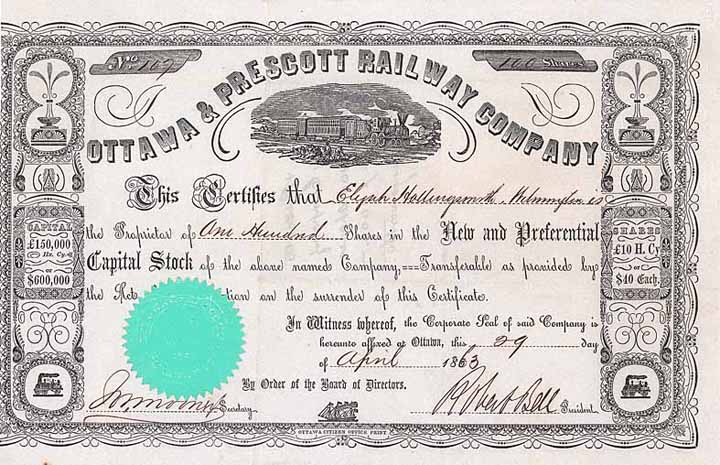 No 119
100 Shares
OTTAWA & PRESCOTT RAILWAY COMPANY
This Certifies that Elijah Hollingsworth, Wilmington is
the Proprietor of One Hundred Shares in the New and Preferential
Capital Stock of the above named Company, Transferable as provided by
the Act on the surrender of this Certificate.
In Witness whereof, the Corporate Seal of said Company is
hereunto affixed at Ottawa, this 29 day
of April 1863
By Order of the Board of Directors.
Secretary.
Robert Bell President.
CAPITAL
£150,000
Hx. Cy.
or
$600,000
SHARES
£10 H. Cy
or
$40 Each.
OTTAWA CITIZEN OFFICE PRINT